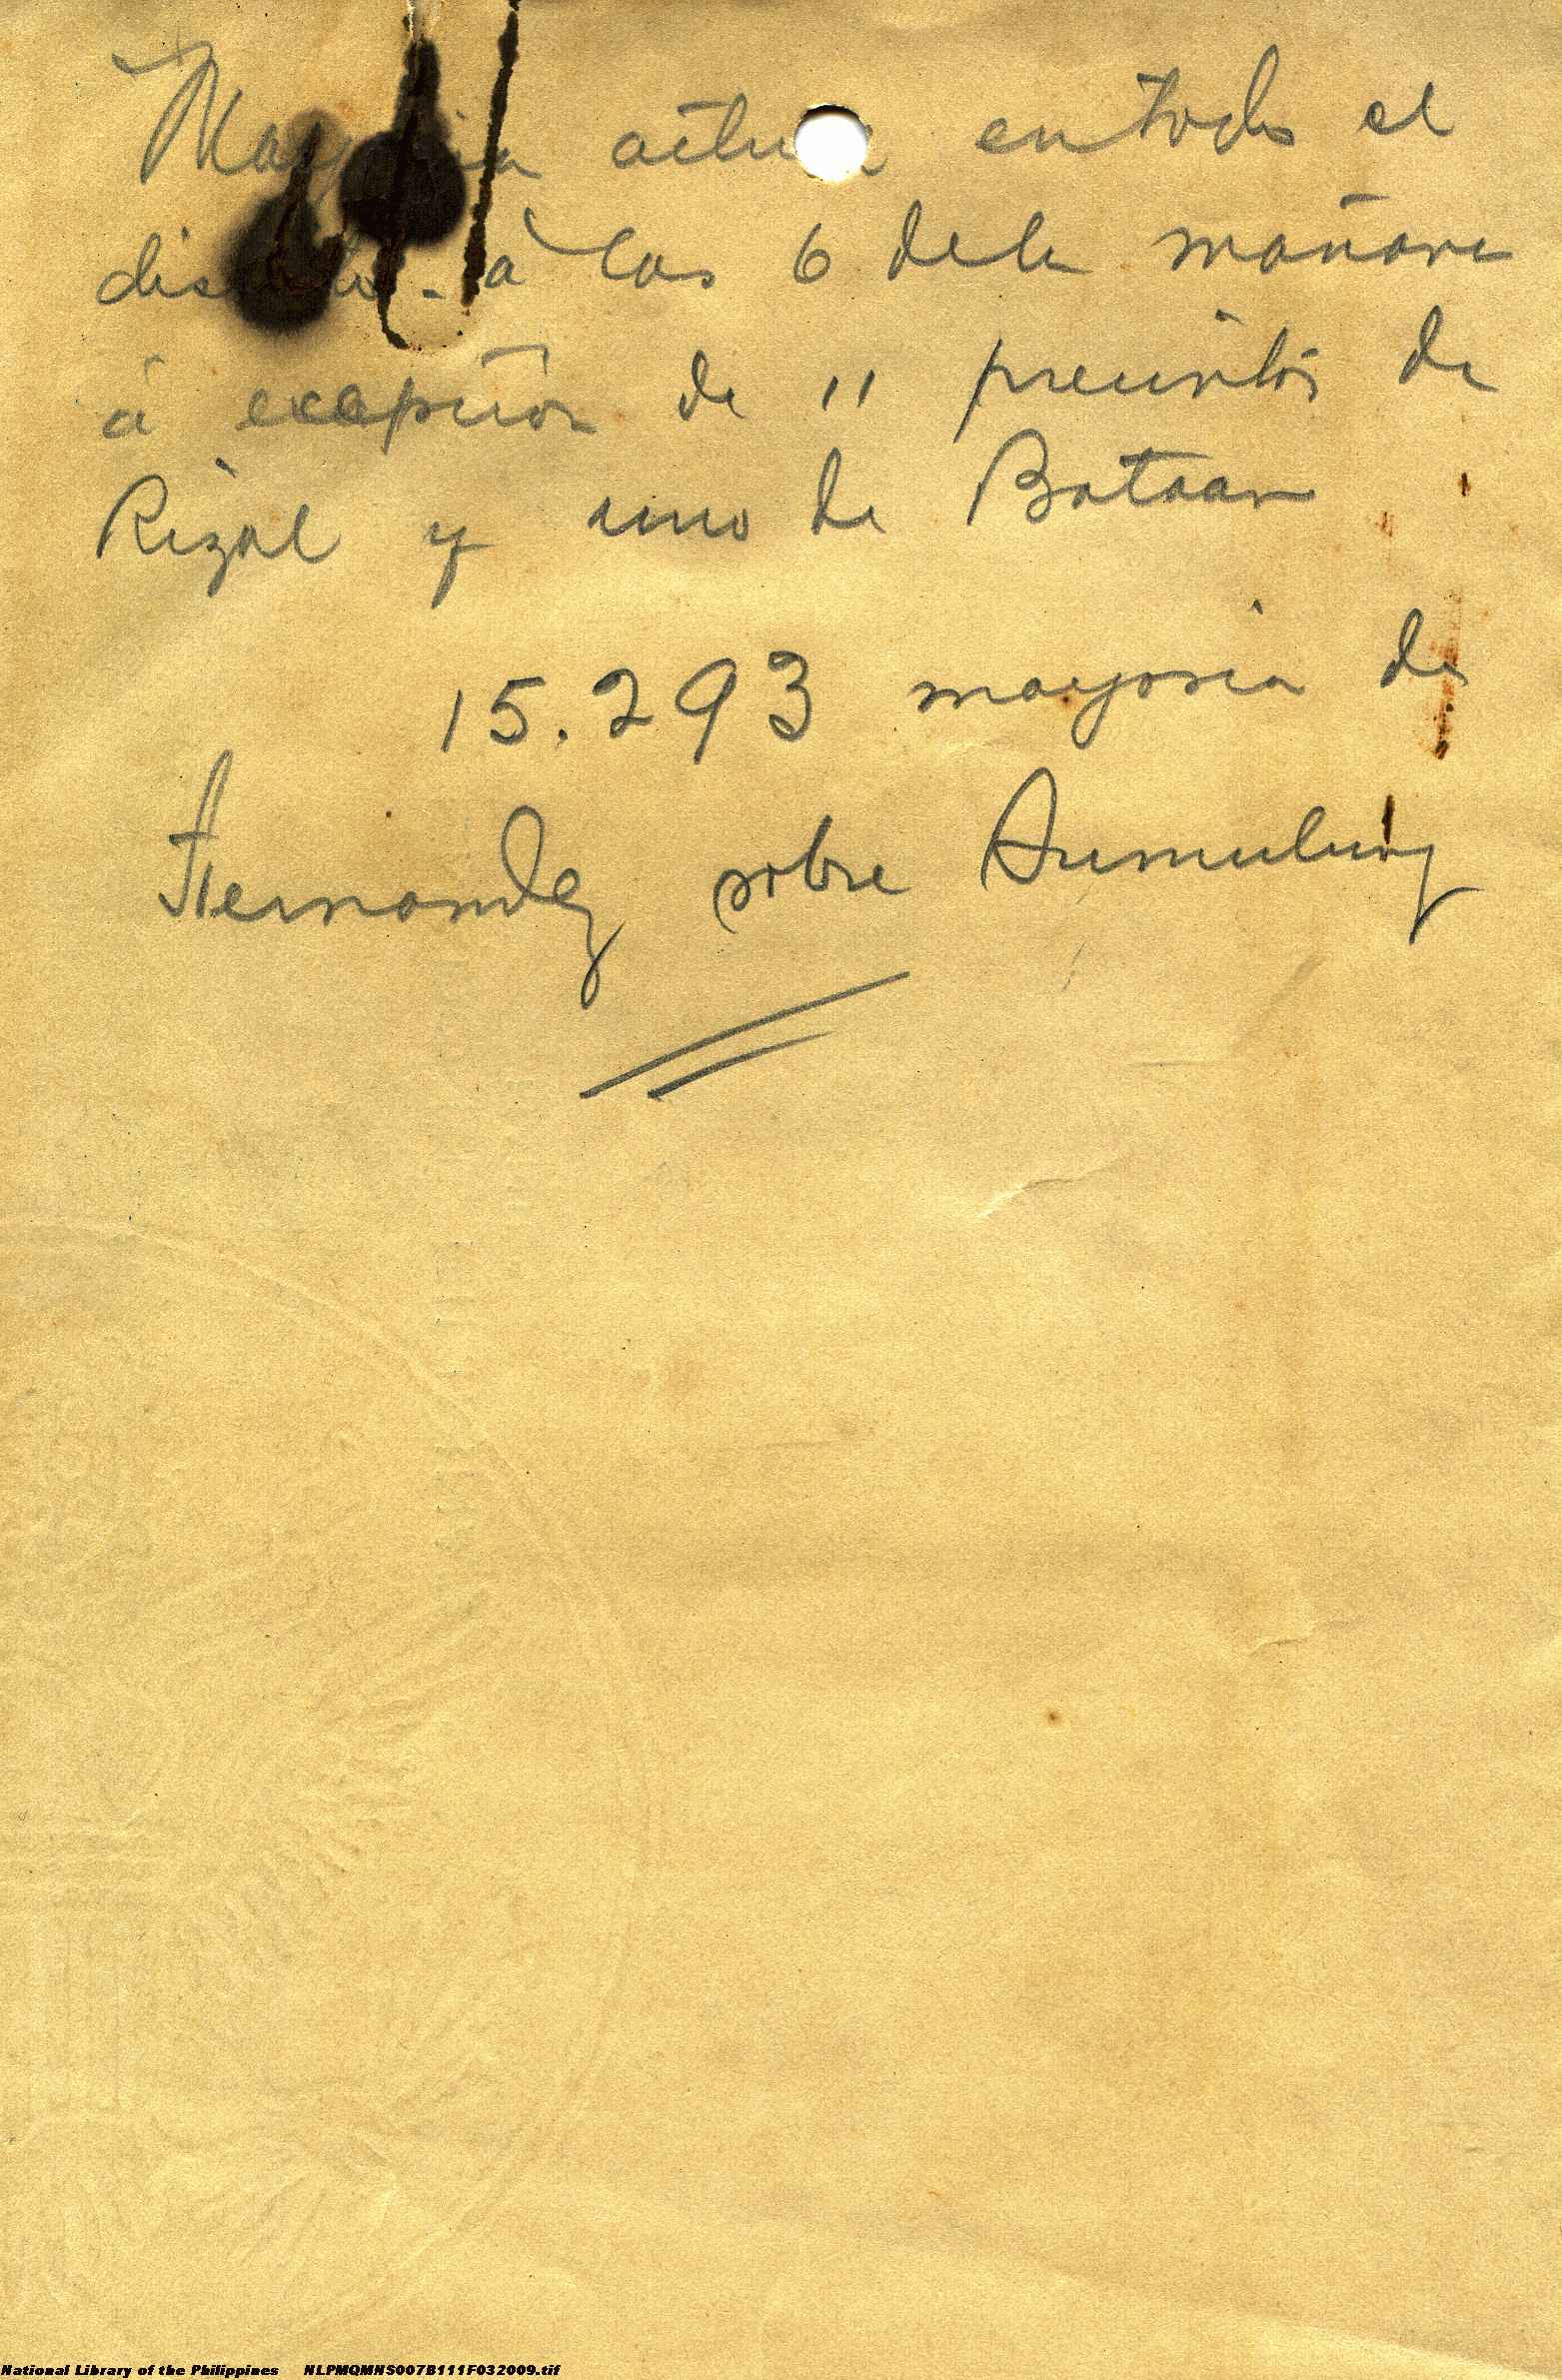 Mayoria actual en todo el
distrito - á las 6 de la mañana
á excepción de 11 precintos de
Rizal y uno de Bataan
15.293 mayoria de
Hernandez sobre Sumulong
National Library of the Philippines NLPMQMNS007B111F032009.tif